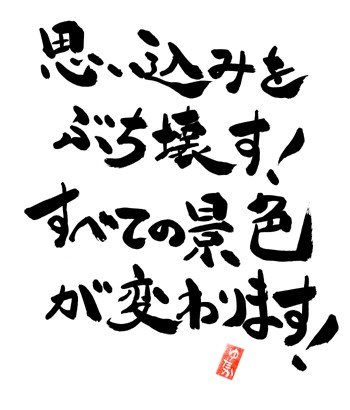 思い込みを
ぶち壊す!
すべての景色
が変わります!
ゆたか